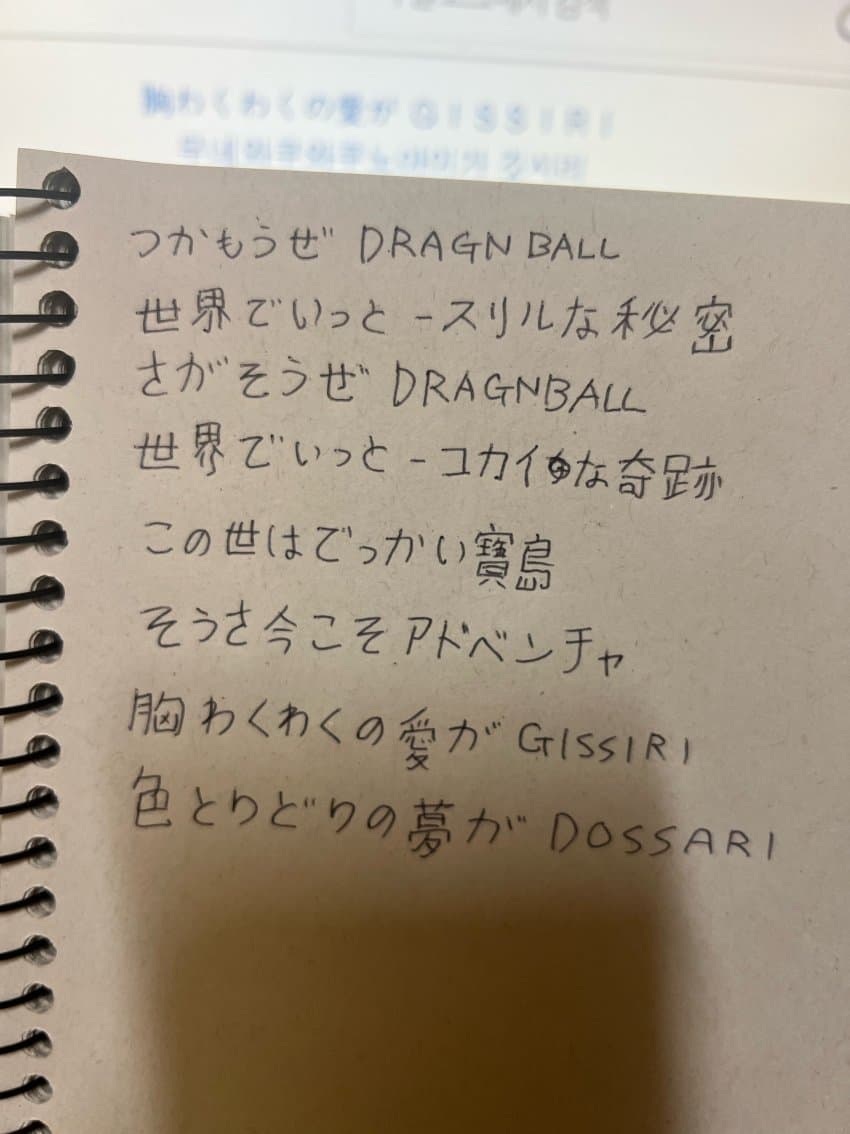 胸わくわくの愛が GISSIRI
つかもうぜ DRAGN BALL
世界でいっと-スリルな秘密
さがそうぜ DRAGNBALL
世界でいっと-コカイな奇跡
この世はでっかい寶島
そうさ今こそアドベンチャ
胸わくわくの愛が GISSIRI
色とりどりの夢が DOSSARI